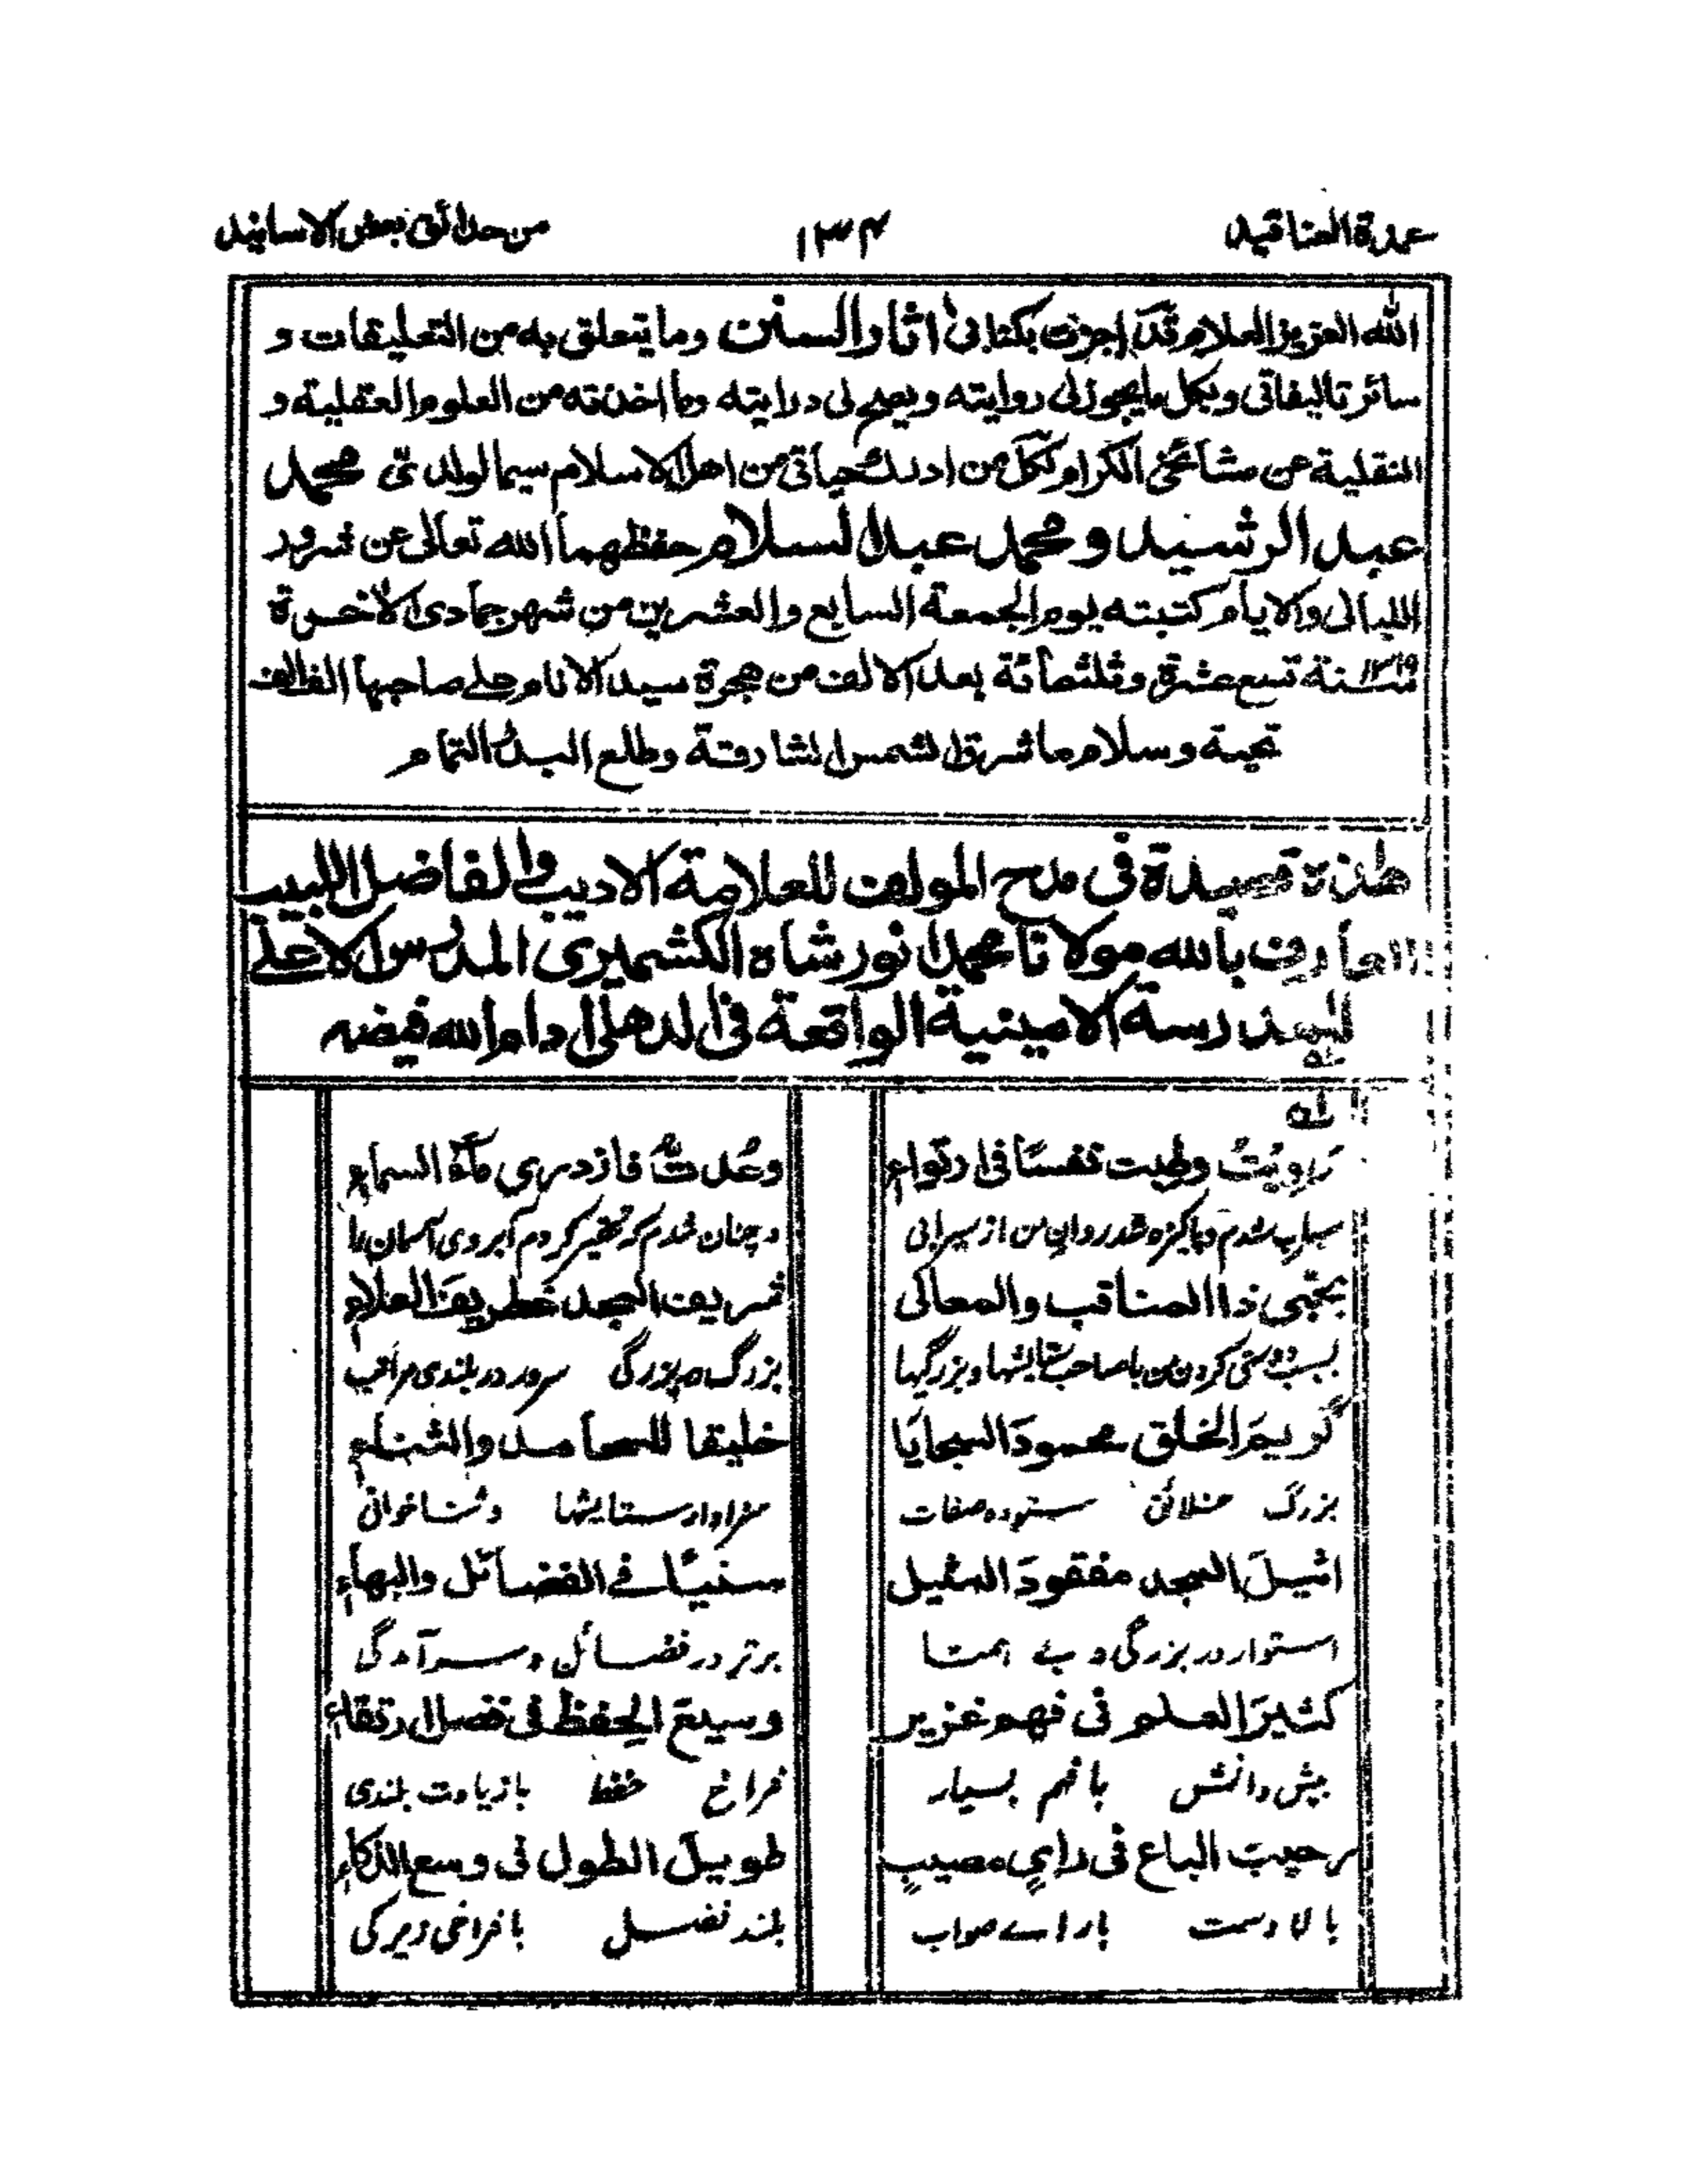 عمدة العناقيد ١٣٤ من حدائق بعض الاسانيد
الله العزيز العلام قد اجزت بكتابى اثار السنن وما يتعلق به من التعليقات و
سائر تاليفاتى وبكل ما يجوز لى روايته ويصح لى درايته وما اخذته من العلوم العقلية و
النقلية عن مشائخى الكرام لكل من ادرك حياتى من اهل الاسلام سيما لولدىّ محمد
عبد الرشيد و محمد عبد السلام حفظهما الله تعالى عن شرور
الليالى والايام كتبته يوم الجمعة السابع والعشرين من شهر جمادى الاخرة
سنة ١٣١٩ تسع عشرة وثلثمائة بعد الالف من هجرة سيد الانام على صاحبها الف الف
تحية وسلام ما شرقت الشمس الشارقة وطلع البدر التمام
هذه قصيدة فى مدح المولف للعلامة الاديب والفاضل اللبيب
العارف بالله مولانا محمد انور شاه الكشميرى المدرس الاعلى
للمدرسة الامينية الواقعة فى الدهلى ادام الله فيضه
رَوِيْتُ وطبت نفسًا فى ارتواء وعُدتُّ فازدرى ماءَ السماء
سیراب شدم وپاکیزه شد روان من از سیرابی وچنان شدم که تحقیر کردم آبروی آسمان را
بحبّى ذا المناقب والمعالى شريف المجد غطريفَ العلاء
بسبب دوستی کردن من باصاحب ستایشها وبزرگیها بزرگ بزرگی سرور در بلندی مراتب
كريمَ الخلق محمودَ السجايا خليقا للمحامد والثناء
بزرگ خلائق ستوده صفات سزاوار ستایشها وثناخوانی
اثيلَ المجد مفقودَ المثيل سنيًّا فى الفضائل والبهاء
استوار در بزرگی و بے همتا برتر در فضائل وسرآمدگی
كثيرَ العلم فى فهم غزير وسيعَ الحفظ فى فضل ارتقاء
بیش دانش با فهم بسیار فراخ حفظ با زیادت بلندی
رحيبَ الباع فى رايٍ مصيبٍ طويلَ الطول فى وسع الذكاء
بالا دست با رائے صواب بلند فضل با فراخی زیرکی